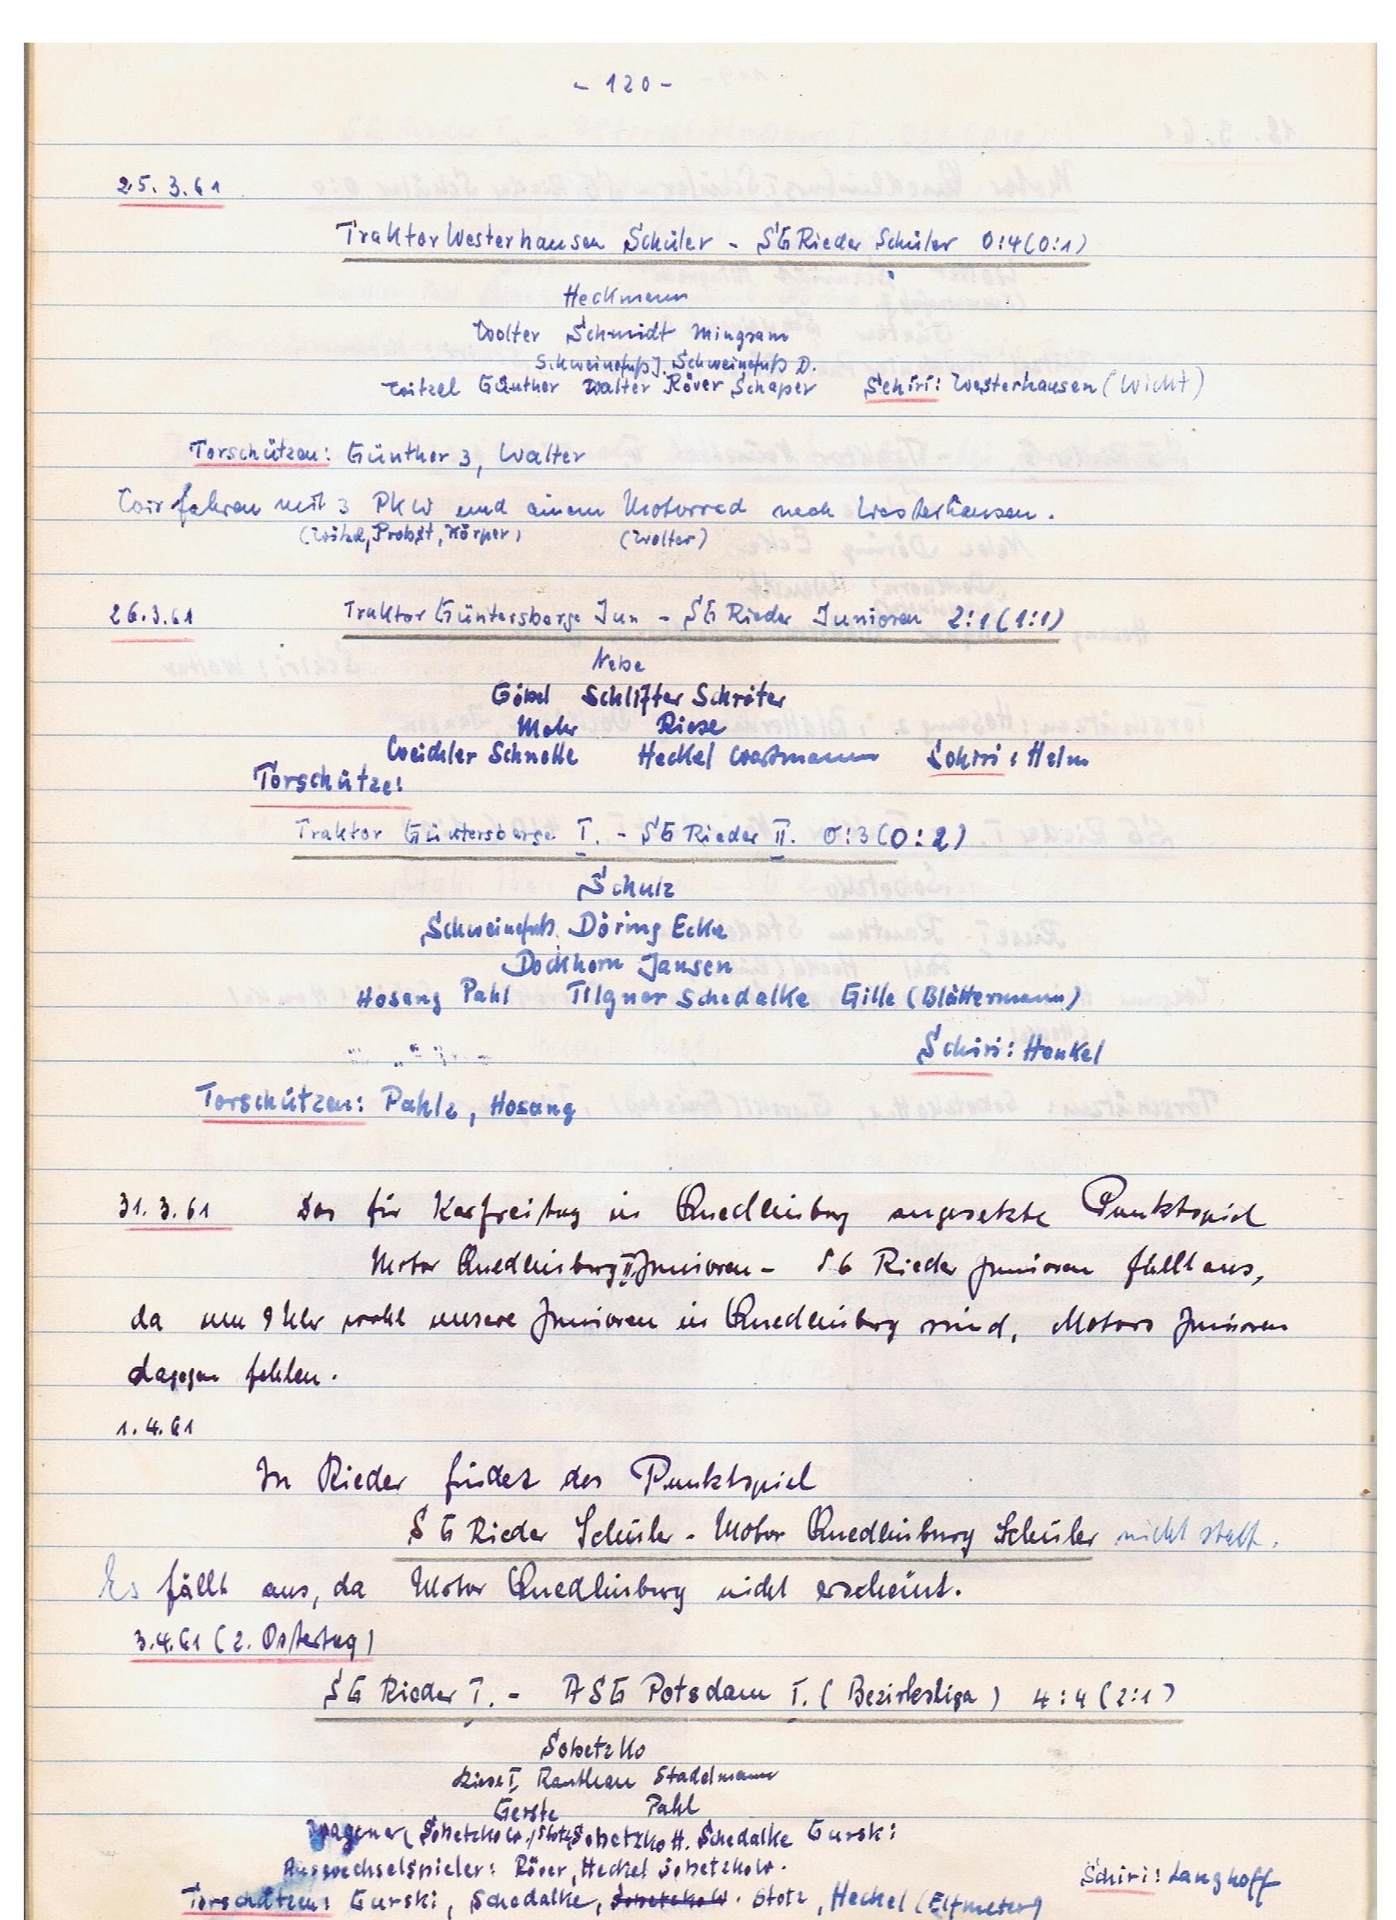 - 120 -
25.3.61
Traktor Westerhausen Schüler - SG Rieder Schüler 0:4 (0:1)
Heckmann
Wolter Schmidt Mingram
Schweinefuß J. Schweinefuß D.
Witzel Günther Walter Röver Schaper Schiri: Westerhausen (Wicht)
Torschützen: Günther 3, Walter
Wir fahren mit 3 PKW und einem Motorrad nach Westerhausen.
(Witzel, Probst, Körper) (Wolter)
26.3.61 Traktor Güntersberge Jun - SG Rieder Junioren 2:1 (1:1)
Nebe
Göbel Schlifter Schröter
Mohr Riese
Weichler Schnelle Heckel Wastmann Schiri: Helm
Torschütze:
Traktor Güntersberge I. - SG Rieder II. 0:3 (0:2)
Schulz
Schweinefuß, Döring Ecke
Dockhorn Jansen
Hosang Pahl Tilgner Schedalke Gille (Blättermann)
Schiri: Henkel
Torschützen: Pahl 2, Hosang
31.3.61 Das für Karfreitag in Quedlinburg angesetzte Punktspiel
Motor Quedlinburg II Junioren - SG Rieder Junioren fällt aus,
da um 9 Uhr wohl unsere Junioren in Quedlinburg sind, Motors Junioren
dagegen fehlen.
1.4.61
In Rieder findet das Punktspiel
SG Rieder Schüler - Motor Quedlinburg Schüler nicht statt.
Es fällt aus, da Motor Quedlinburg nicht erscheint.
3.4.61 (2. Ostertag)
SG Rieder I. - ASG Potsdam I. (Bezirksliga) 4:4 (2:1)
Sobetzko
Riese I, Ranthan Stadelmann
Gerste Pahl
Wagener, Sobetzko W./Stotz Sobetzko H. Schedalke Gurski
Auswechselspieler: Röver, Heckel Sobetzko W.
Schiri: Langhoff
Torschützen: Gurski, Schedalke, Sobetzko W. Stotz, Heckel (Elfmeter)